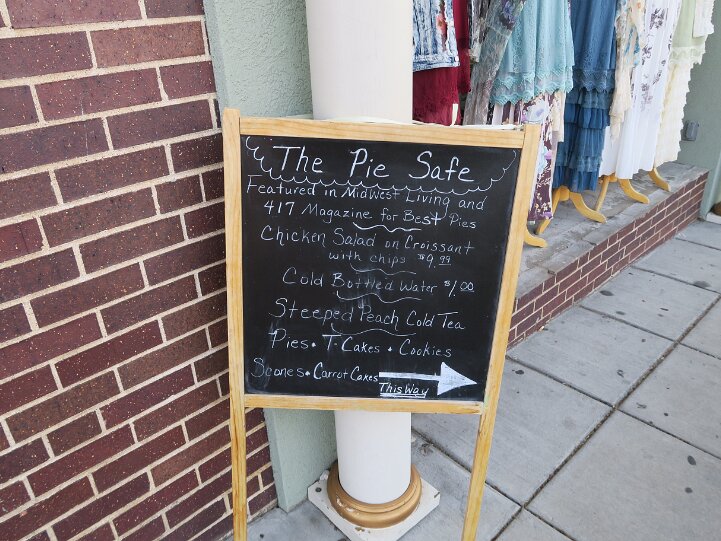 The Pie Safe
Featured in MidWest Living and
417 Magazine for Best Pies
Chicken Salad on Croissant
with chips $9.99
Cold Bottled Water $1.00
Steeped Peach Cold Tea
Pies • T-Cakes • Cookies
Scones • Carrot Cakes
This Way